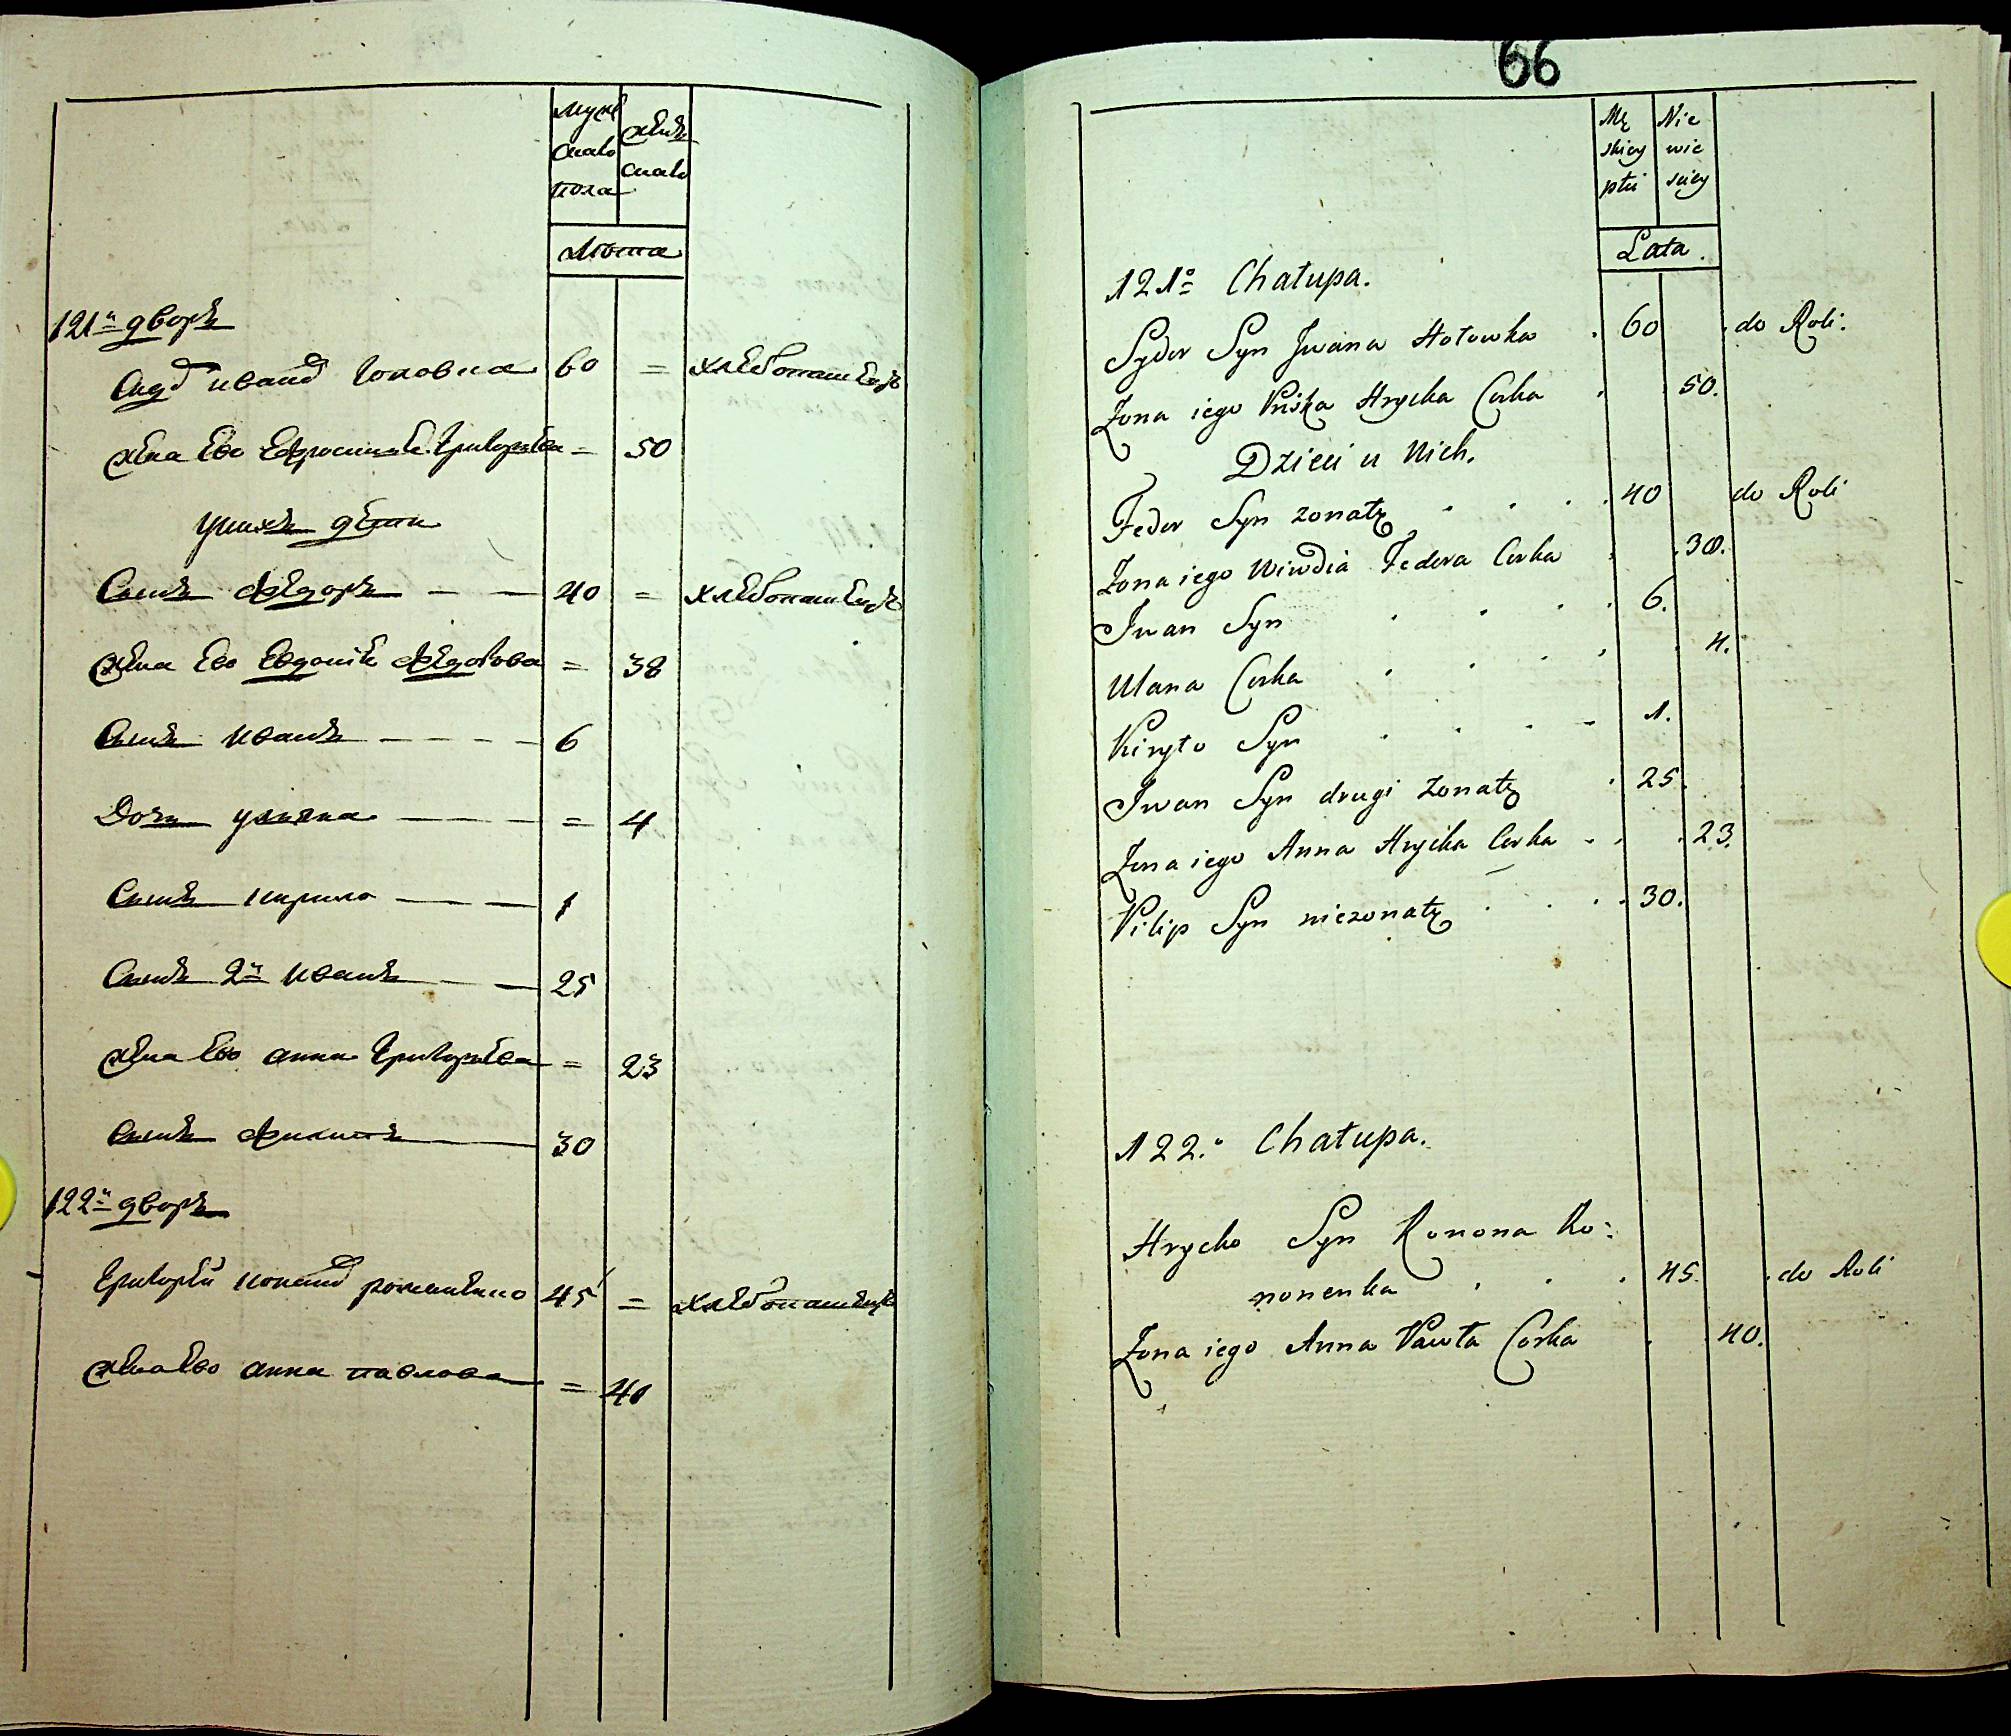 Муже
ска͠го
пола
женс
ска͠го
Лѣта
121й дворъ
Сидѡр Иванѡв Головка 60 = хлѣбопашецъ
жена Ево Ефросиния Григорьева = 50
у нихъ дѣти
Сынъ Федоръ — — 40 = хлѣбопашецъ
жена Ево Евдокия Федорова = 38
Сынъ Иванъ — — — — 6
Дочь Уляна — — — = 4
Сынъ Кирило — — — 1
Сынъ 2й Иванъ — — 25
жена Ево Анна Григорьева = 23
Сынъ Филипъ — 30
122й дворъ
Григорей Кононов 45 = хлѣбопашецъ
жена Ево Анна Павлова = 40
66
Mę
skiey
płci
Nie
wie
sciey
Lata.
121o Chałupa.
Sydor Syn Jwana Hołowka . 60 . do Roli.
Zona iego Pryska Hrycka Corka . 50.
Dzieci u Nich.
Feder Syn zonaty . . . . 40 do Roli
Zona iego Wiwdia Fedora Corka . . 38.
Jwan Syn . . . . 6.
Ulana Corka . . . . 4.
Kiryło Syn . . . - 1.
Jwan Syn drugi zonaty . 25.
Zona iego Anna Hrycka Corka . . . 23.
Pilip Syn niezonaty . . . . 30.
122.o Chałupa.
Hrycko Syn Konona Ko=
nonenka . . . 45. . do Roli
Zona iego Anna Pawła Corka . . 40.